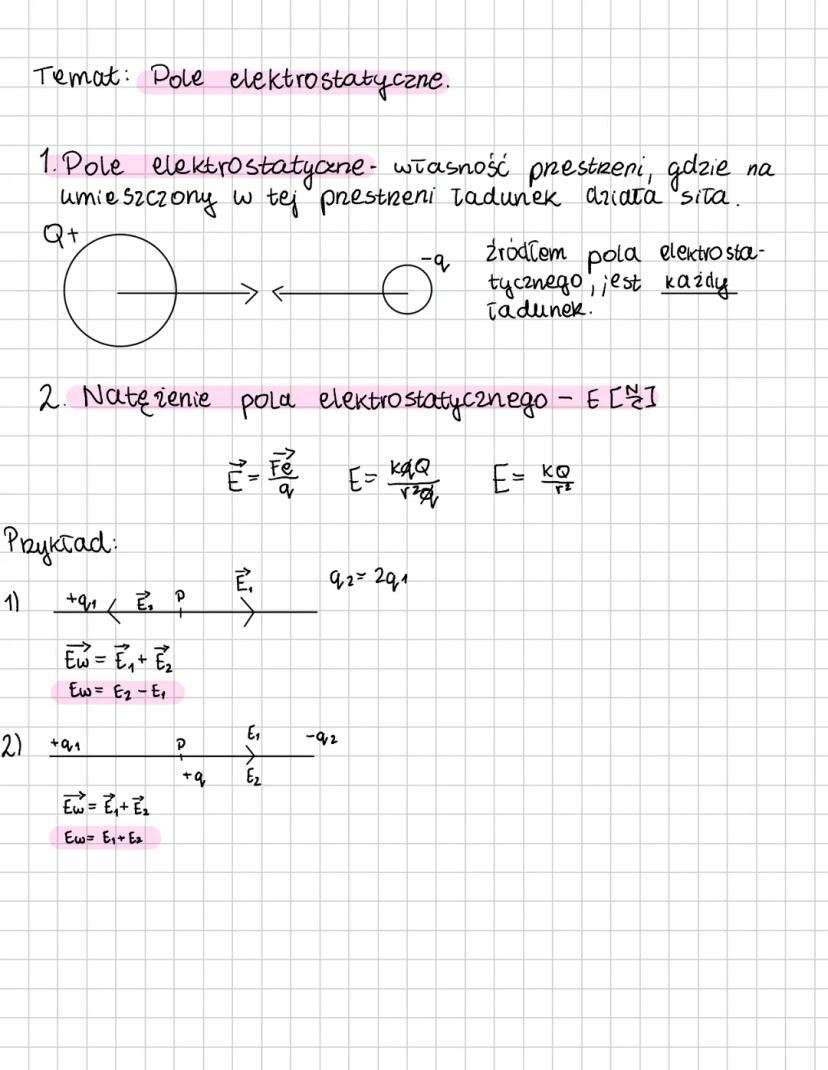 Temat: Pole elektrostatyczne.
1. Pole elektrostatyczne - własność przestrzeni, gdzie na
umieszczony w tej przestrzeni ładunek działa siła.
Q+
-q
źródłem pola elektrosta-
tycznego, jest każdy
ładunek.
2. Natężenie pola elektrostatycznego - E [N/C]
E⃗ = F⃗e/q E = kqQ/r²q E = kQ/r²
Przykład:
1) +q1 P E⃗1 q2 = 2q1
E⃗w = E⃗1 + E⃗2
Ew = E2 - E1
2) +q1 P E1 -q2
+q E2
E⃗w = E⃗1 + E⃗2
Ew = E1 + E2